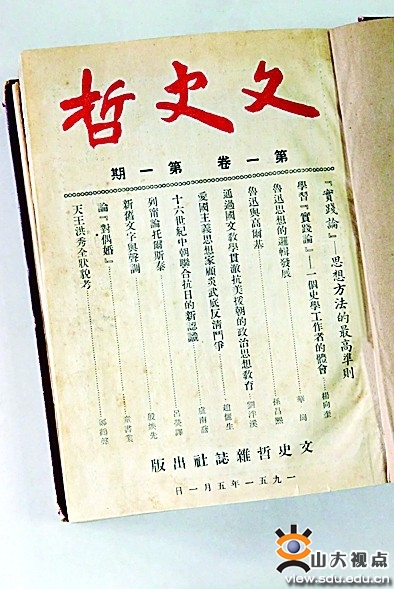 文史哲
第一卷 第一期
『實踐論』思想方法的最高準則
學習『實踐論』——一個史學工作者的體會……楊向奎
魯迅思想的邏輯發展……華崗
魯迅與高爾基……孫昌熙
通過國文教學貫徹抗美援朝的政治思想教育……劉泮溪
愛國主義思想家顧炎武底反清鬥爭……趙儷生
十六世紀中朝聯合抗日的新認識……盧南喬
列甯論托爾斯泰……呂熒譯
新舊文字與聲調……殷煥先
論『對偶婚』……童書業
天王洪秀全狀貌考……鄭鶴聲
文史哲雜誌社出版
一九五一年五月一日
山大视点
view.sdu.edu.cn